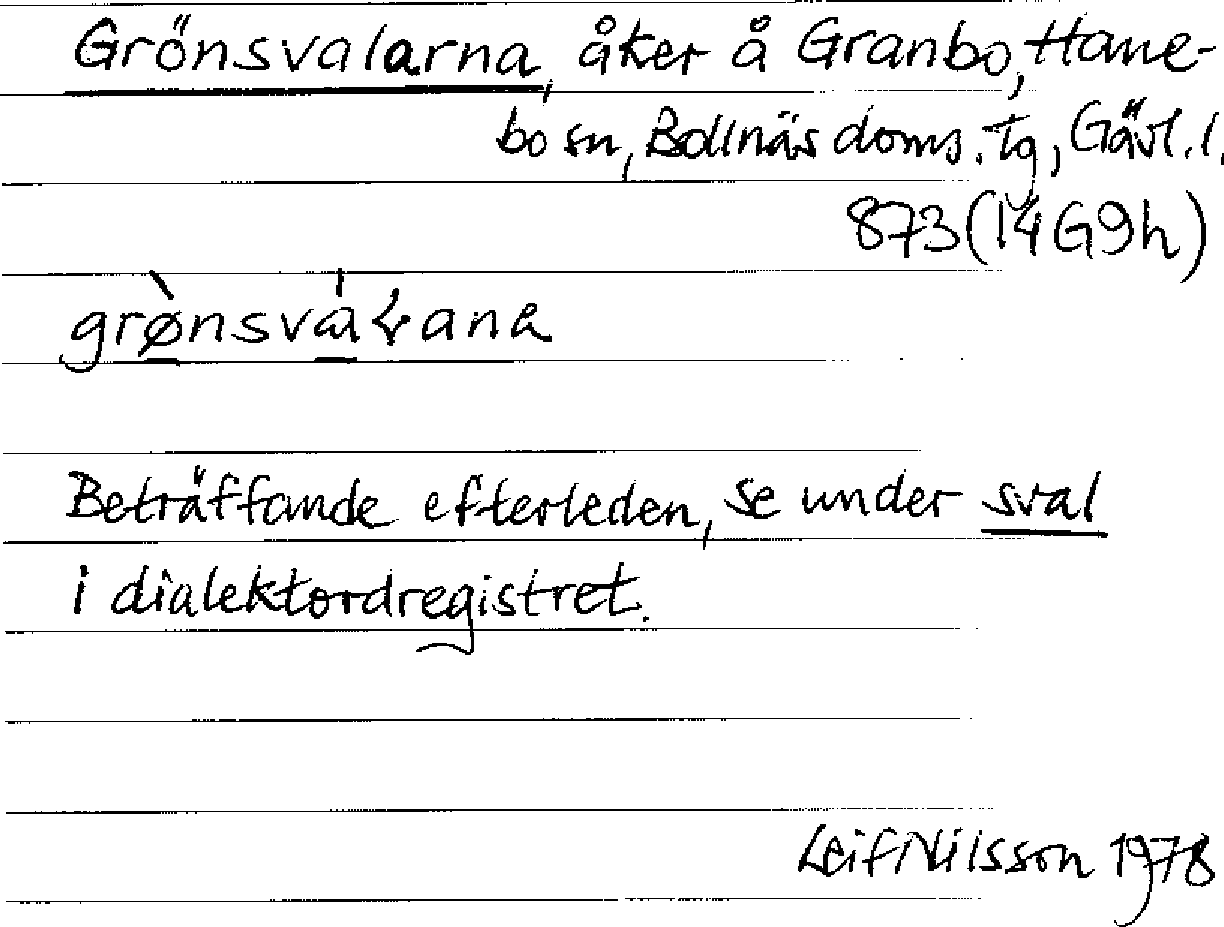 Grönsvalarna, åker å Granbo, Hane-
bo sn, Bollnäs doms. tg, Gävl. l.
873 (14G9h)
grø̀nsváɽana
Beträffande efterleden, se under sval
i dialektordregistret.
Leif Nilsson 1978